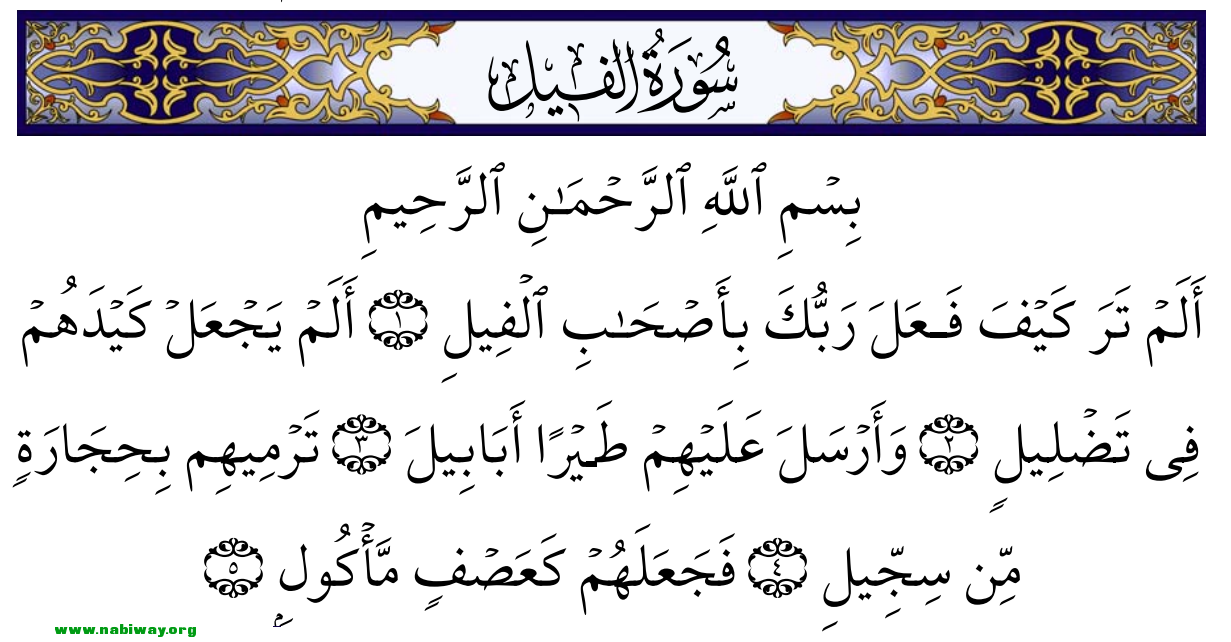 سُورَةُ الفِيل
بِسۡمِ ٱللَّهِ ٱلرَّحۡمَـٰنِ ٱلرَّحِيمِ
أَلَمۡ تَرَ كَيۡفَ فَعَلَ رَبُّكَ بِأَصۡحَـٰبِ ٱلۡفِيلِ ١ أَلَمۡ يَجۡعَلۡ كَيۡدَهُمۡ
فِى تَضۡلِيلٍ ٢ وَأَرۡسَلَ عَلَيۡهِمۡ طَيۡرًا أَبَابِيلَ ٣ تَرۡمِيهِم بِحِجَارَةٍ
مِّن سِجِّيلٍ ٤ فَجَعَلَهُمۡ كَعَصۡفٍ مَّأۡكُولِۭ ٥
www.nabiway.org